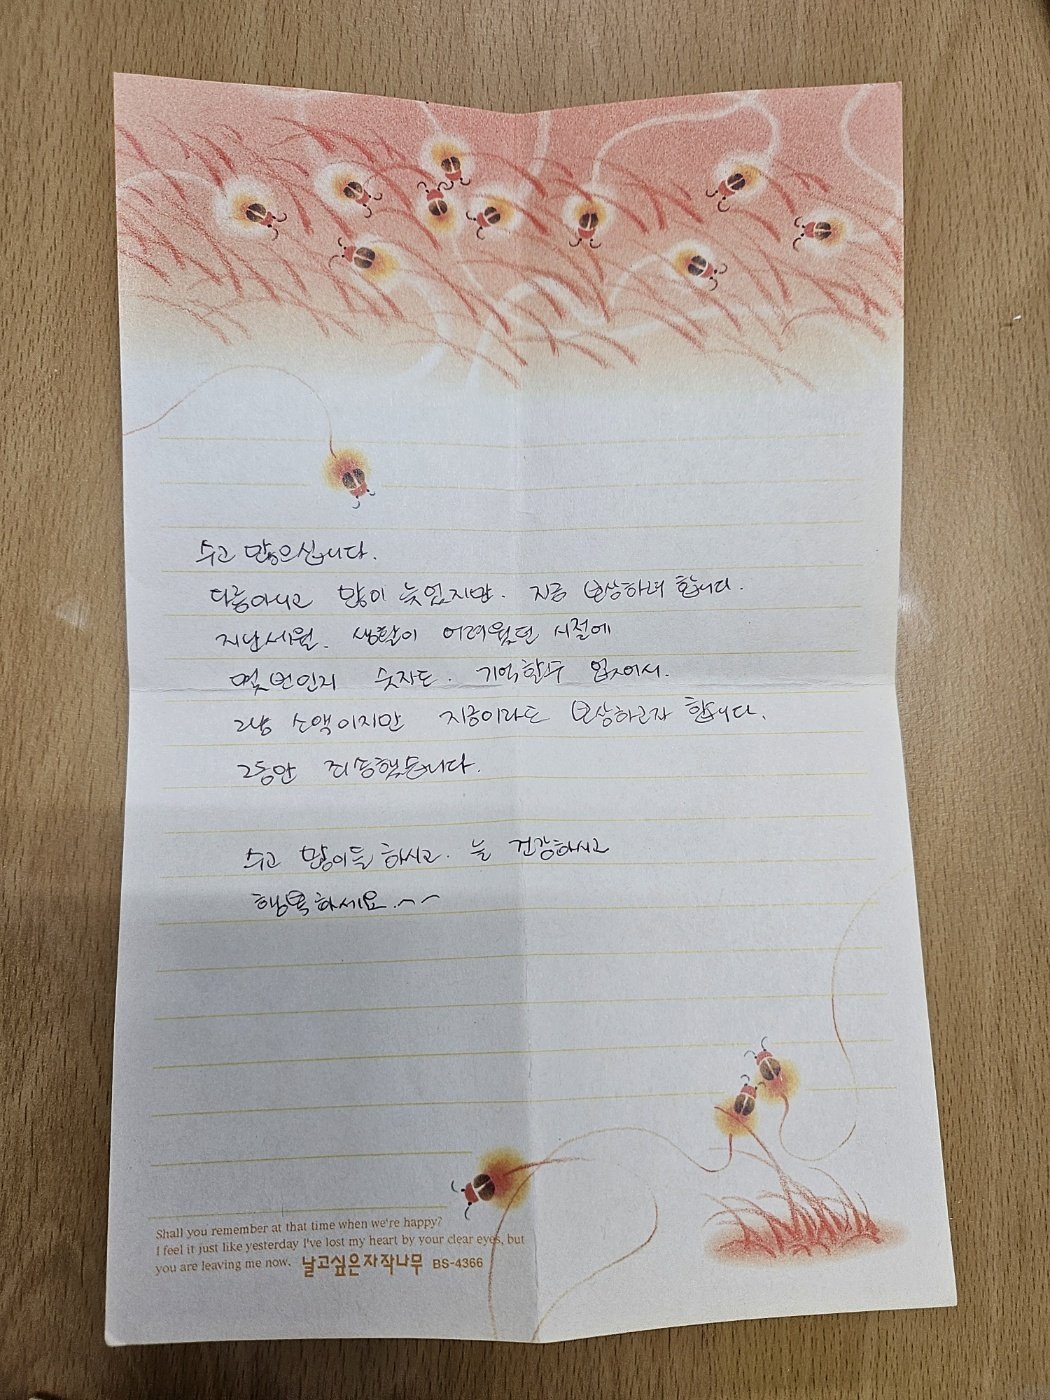 수고 많으십니다.
다름아니고 많이 늦었지만. 지금 보상하려 합니다.
지난세월. 생활이 어려웠던 시절에
몇번인지 숫자도. 기억할수 없어서.
그냥 소액이지만 지금이라도 보상하고자 합니다.
그동안 죄송했습니다.
수고 많이들 하시고. 늘 건강하시고
행복하세요.^^
Shall you remember at that time when we're happy?
I feel it just like yesterday I've lost my heart by your clear eyes, but
you are leaving me now. 날고싶은자작나무 BS-4366